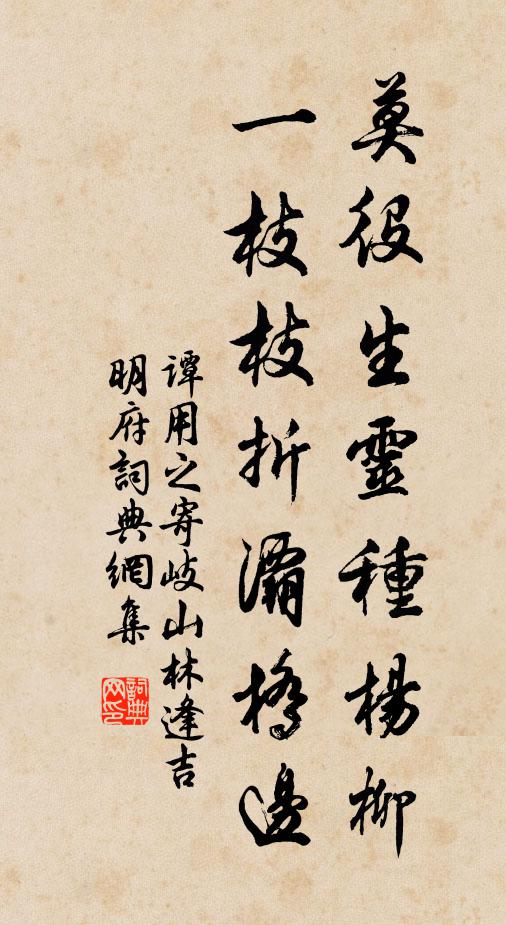 莫役生靈種楊柳
一枝枝折灞橋邊
譚用之寄岐山林逢吉
明府詞典網集
詞典網印